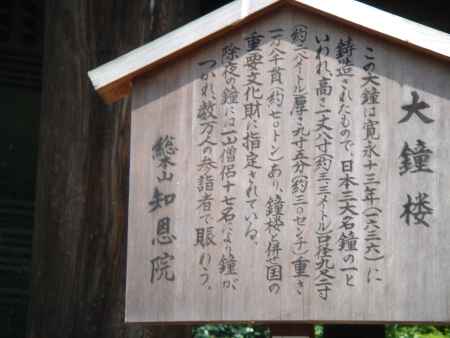 大鐘楼
この大鐘は寛永十三年(一六三六)に
鋳造されたもので、日本三大名鐘の一と
いわれ、高さ一丈八寸(約三・三メートル)口径九尺二寸
(約二・八メートル)厚さ九寸五分(約三〇センチ)重さ
一万八千貫(約七〇トン)あり、鐘楼と併せ国の
重要文化財に指定されている。
除夜の鐘には一山僧侶十七名により鐘が
つかれ、数万人の参詣者で賑わう。
総本山 知恩院